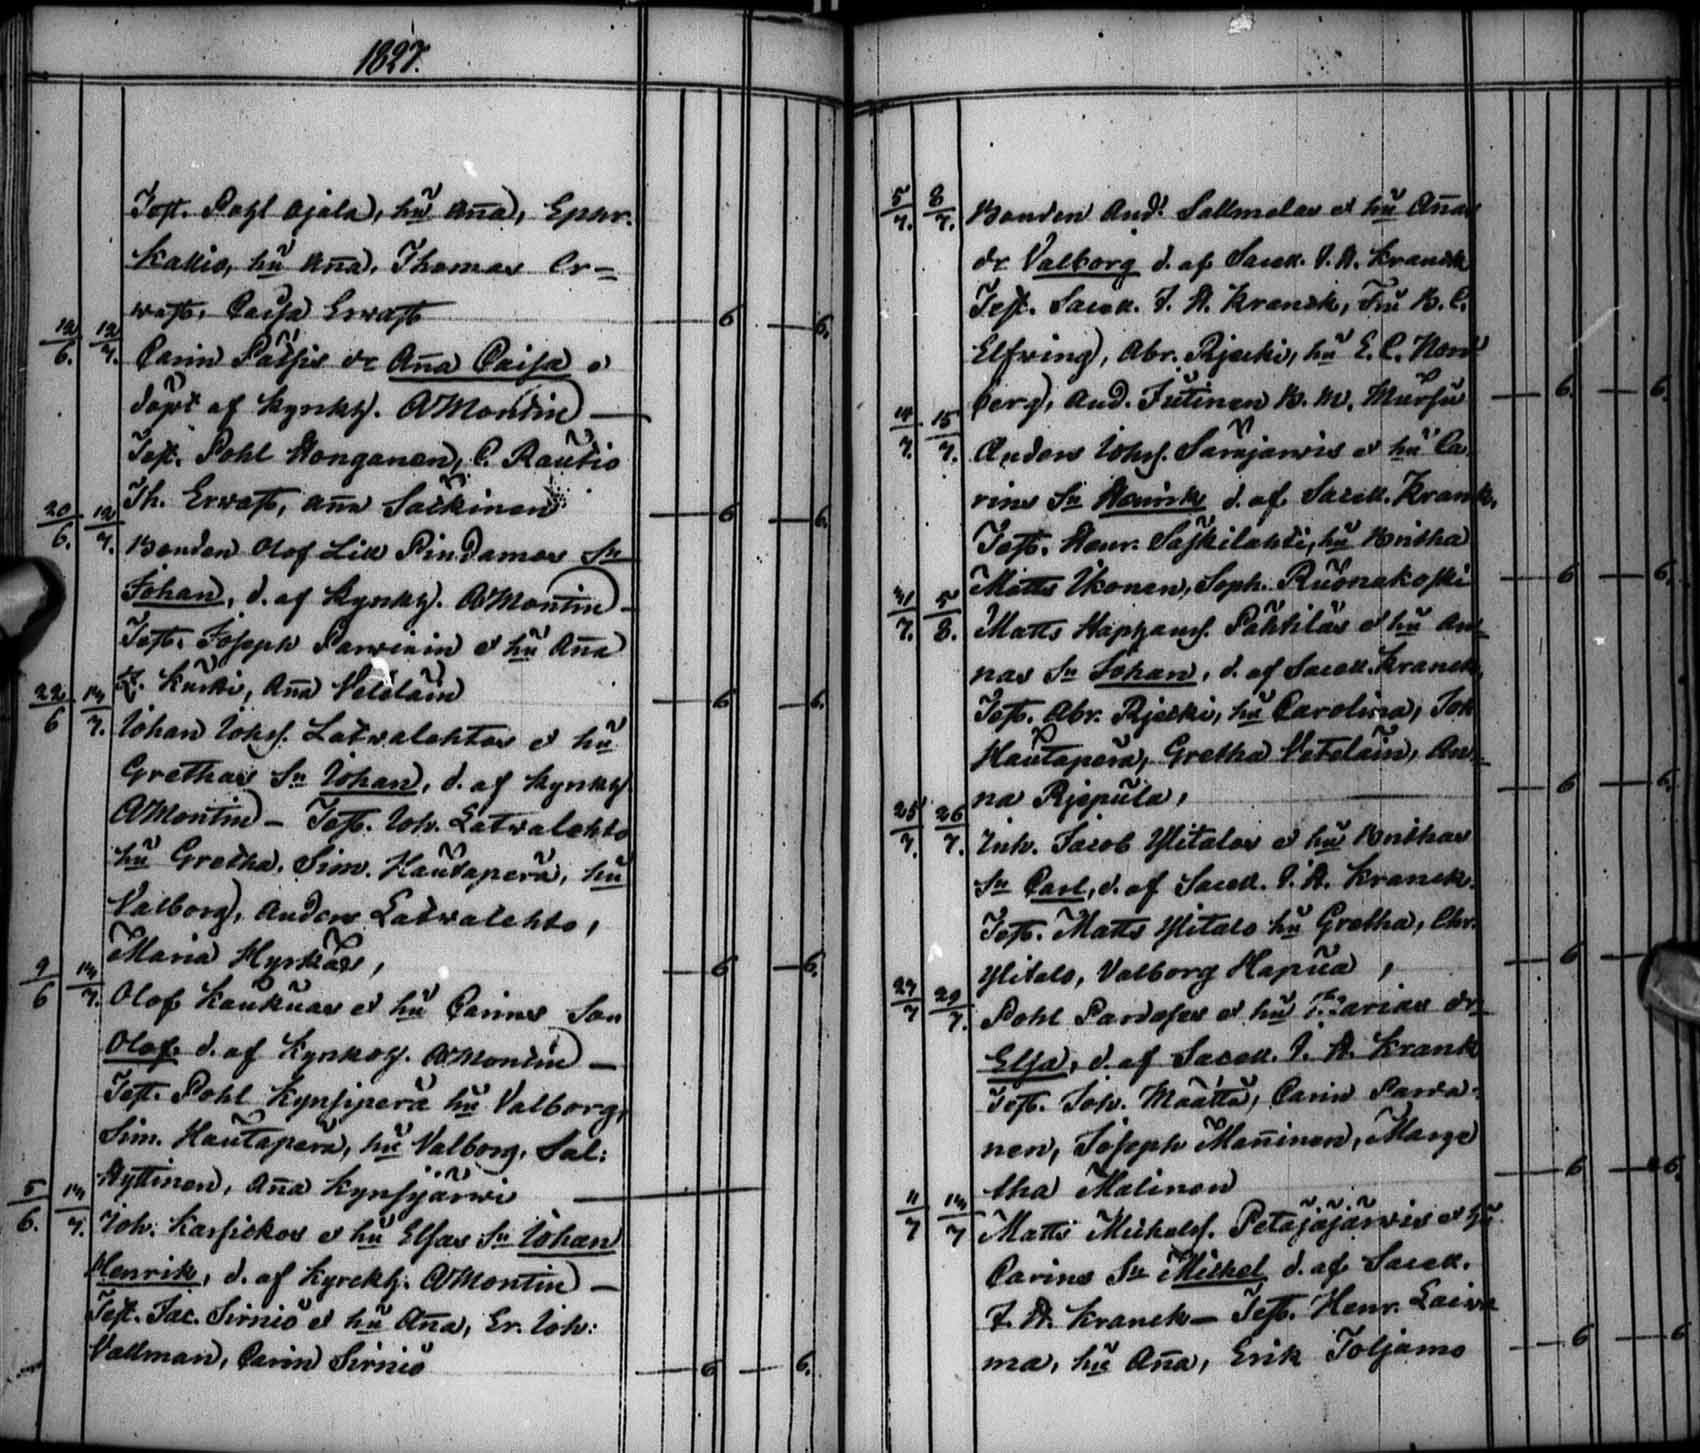 1827.
Test. Pohl Ojala, hũ Aña, Ephr.
Kallio, hũ Aña, Thomas Er=
wast, Caisa Erwast 6 6.
12/6. 12/7. Carin Patsis dr Aña Caisa
döpt af Kyrkhj. A Montin —
Test. Pohl Honganen, C. Rautio
Th. Erwast, Aña Särkinen 6 6.
20/6. 12/7. Bonden Olof Lill Pindamos Sn
Johan, d. af Kyrkhj. A Montin —
Test. Joseph Parviain et hũ Aña
Kurki, Aña Veteläin 6 6.
22/6 14/7. Johan Johss. Latvalehtos et hũ
Grethas Sn Johan, d. af Kyrkhj
A Montin — Test. Joh. Latvalehto
hũ Gretha, Sim. Hautaperä, hũ
Valborg, Anders Latvalehto,
Maria Hyrkäs, 6 6.
9/6 14/7. Olof Kaukuas et hũ Carins Son
Olof d. af Kyrkohj. A Montin —
Test. Pohl Kynsiperä hũ Valborg,
Sim. Hautaperä, hũ Valborg, Sal:
Hyttinen, Aña Kynsijärwi
5/6. 14/7. Joh. Karsickos et hũ Elsas Sn Johan
Henrik, d. af Kyrckhj. A Montin —
Test. Jac. Sirniö et hũ Aña, Er. Joh:
Vallman, Carin Sirniö 6 6.
5/7. 8/7. Bonden And. Sallmelas et hũ Añas
dr Valborg d. af Sacell. J. A. Kranck
Test. Sacell. J. A. Kranck, Fru B. C.
Elfving, Abr. Rjecki, hũ E. C. Nord
berg, And. Jutinen B. M. Mursu 6. 6.
14/7. 15/7. Anders Johss. Särnjärvis et hũ Ca
rins Sn Henrik d. af Sacell. Krank.
Test. Henr. Säskilahti, hũ Britha
Matts Ikonen, Soph. Ruonakoski 6 6.
31/7. 5/8. Matts Hapzanss. Pahkilas et hũ An=
nas Sn Johan, d. af Sacell. Kranck,
Test. Abr. Rjecki, hũ Carolina, Joh
Hautaperä, Gretha Veteläin, An=
na Rjepula, 6 6.
25/7. 26/7. Inh. Jacob Ylitalos et hũ Brithas
Sn Carl, d. af Sacell. J. A. Kranck.
Test. Matts Ylitalo hũ Gretha, Chr.
Ylitalo, Valborg Hapua, 6 6.
27/7 29/7. Pohl Pardases et hũ Marias dr
Elsa, d. af Sacell. J. A. Krank
Test. Joh. Määttä, Carin Parva=
nen, Joseph Mañinen, Marge
tha Malinen 6 6.
11/7 14/7 Matts Michelss. Petäjäjärvis et hũ
Carins Sn Michel d. af Sacell.
J. A. Kranck — Test. Henr. Laiva
ma, hũ Aña, Erik Toljamo 6 6